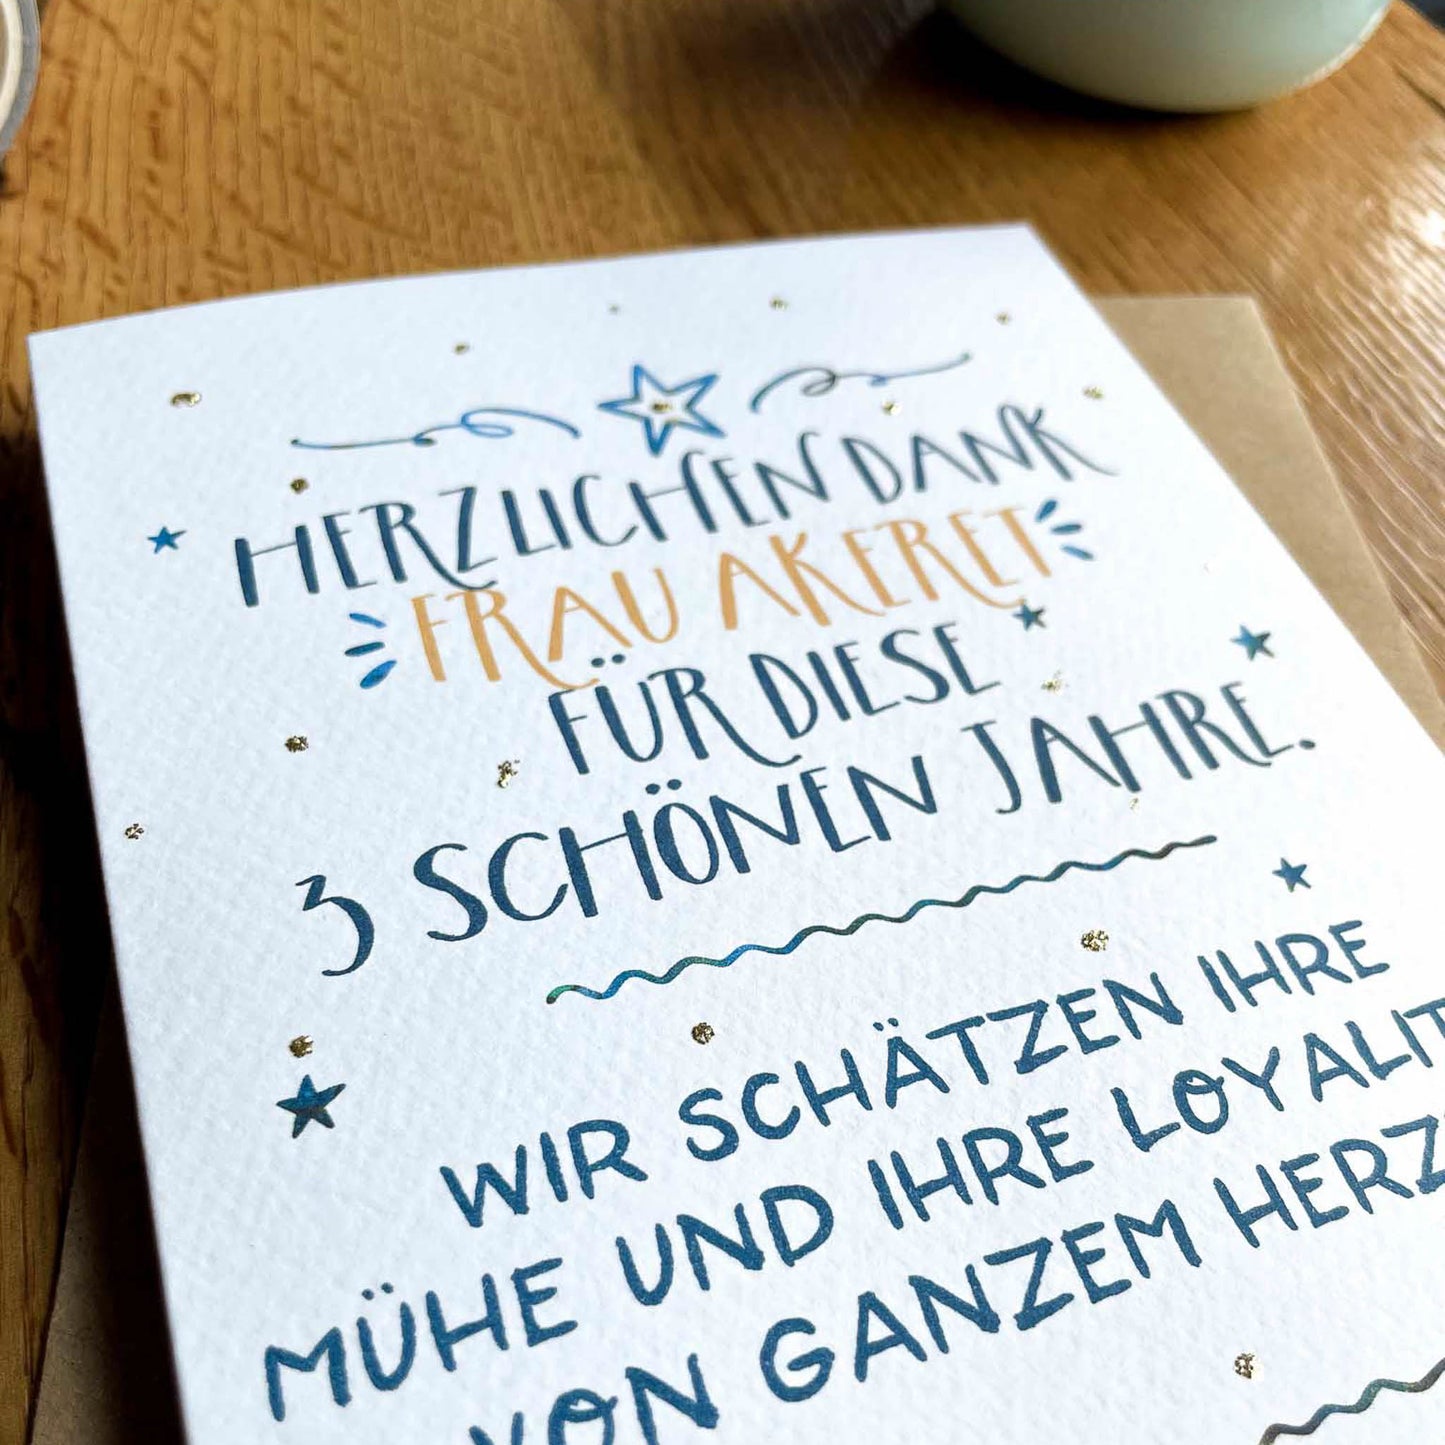 HERZLICHEN DANK
FRAU AKERET
FÜR DIESE
3 SCHÖNEN JAHRE.
WIR SCHÄTZEN IHRE
MÜHE UND IHRE LOYALIT
VON GANZEM HERZ